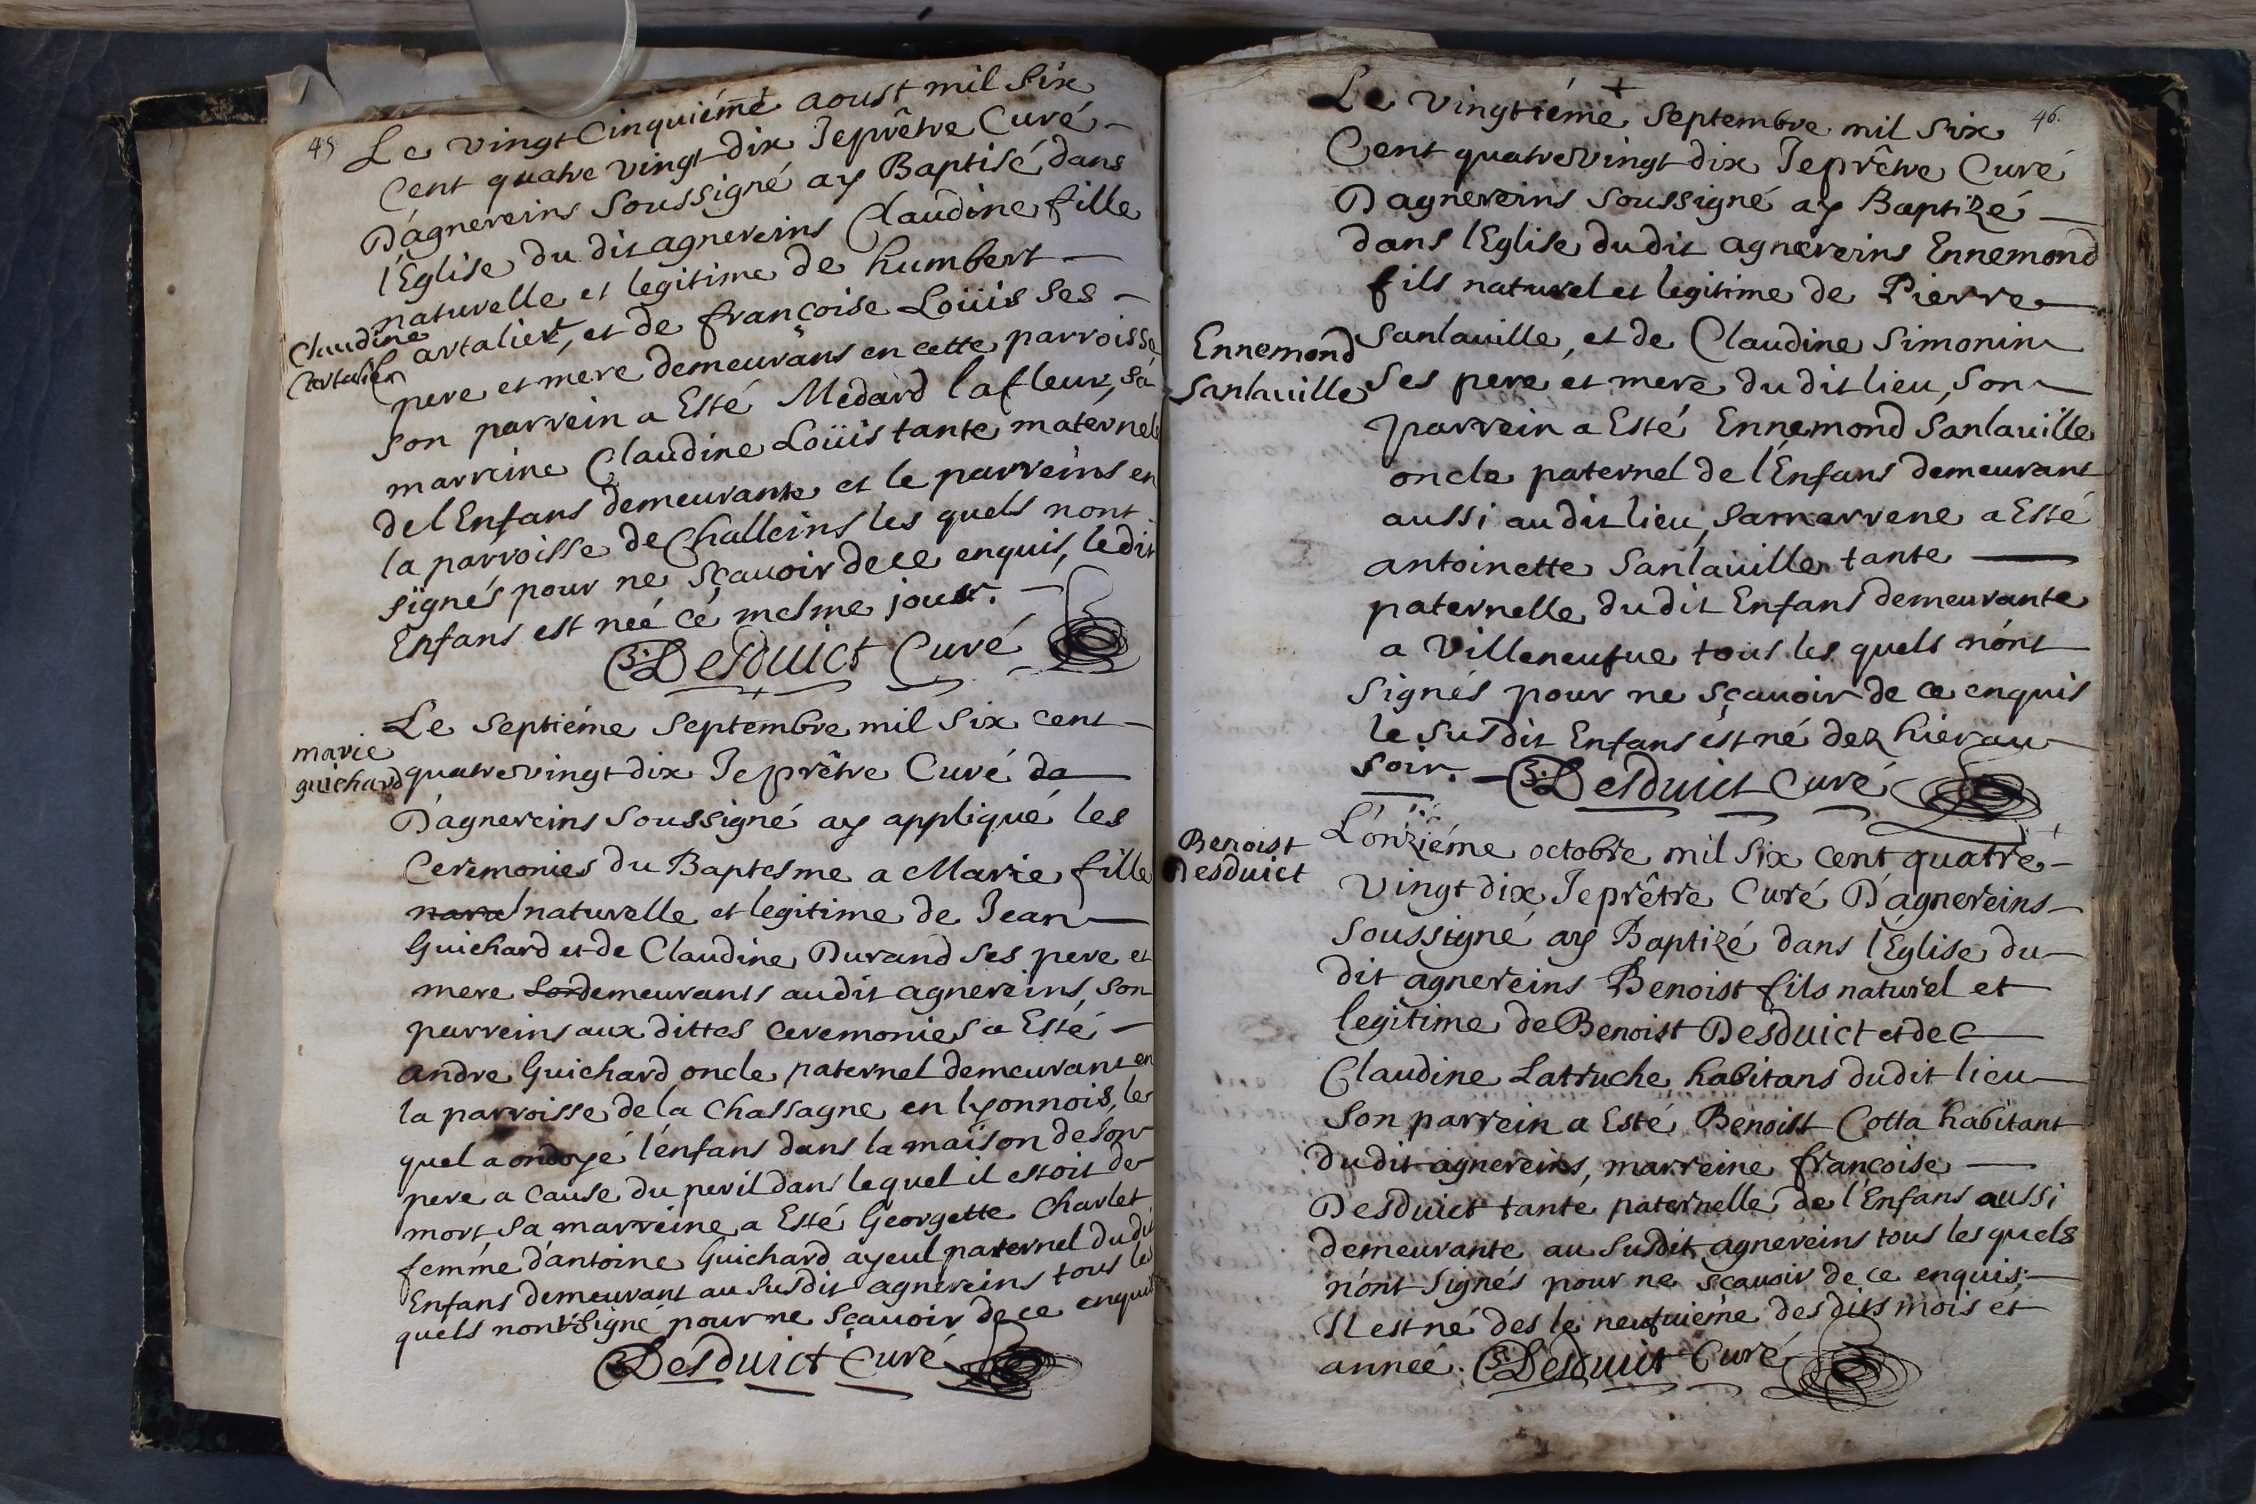 45
Le vingt Cinquiéme aoust mil six
Cent quatre vingt dix Je prêtre Curé
D'agnereins Soussigné ay Baptisé dans
l'Eglise du dit agnereins Claudine fille
naturelle et legitime de humbert
Claudine
Cartalier
Cartalier, et de françoise Loüis ses
pere et mere demeurans en cette parroisse,
son parrein a Esté Medard lafleur, sa
marreine Claudine Loüis tante maternelle
de l Enfans demeurante et le parreins en
la parroisse de Challeins les quels nont
signés pour ne sçavoir de ce enquis, le dit
Enfans est neé ce mesme jour.
Desduict Curé
Le Septiéme Septembre mil six cent
marie
guichard
quatrevingt dix Je prêtre Curé da
D'agnereins Soussigné ay appliqué les
Ceremonies du Baptesme a Marie fille
naturelle et legitime de Jean
Guichard et de Claudine Durand ses pere et
mere demeurants audit agnereins, son
parreins aux dittes ceremonies a Esté
andre Guichard oncle paternel demeurant en
la parroisse de la Chassagne en lyonnois, le
quel a ondoyé l'enfans dans la maison de son
pere a cause du peril dans lequel il estoit de
mort, sa marreine a Esté Georgette Charlet
femme d'antoine Guichard ayeul paternel dudit
Enfans demeurant au susdit agnereins tous les
quels nont signé pour ne sçavoir de ce enquis
Desduict Curé
46.
Le vingtiéme Septembre mil six
Cent quatrevingt dix Je prêtre Curé
D agnereins soussigné ay Baptizé
dans l Eglise dudit agnereins Ennemond
fils naturel et legitime de Pierre
Ennemond
Sanlauille
Sanlauille, et de Claudine Simonin
Ses pere et mere du dit lieu, son
parrein a Esté Ennemond Sanlauille
oncle paternel de l'Enfans demeurant
aussi au dit lieu, sa marrene a Esté
antoinette Sanlauille tante
paternelle du dit Enfans demeurante
a Villeneufue tous les quels n'ont
signés pour ne sçavoir de ce enquis
le Susdit Enfans est né dez hier au
soir. Desduict Curé
Benoist
Desduict
L'onziéme octobre mil six cent quatre
Vingt dix Je prêtre Curé D'agnereins
Soussigné ay Baptizé dans l'Eglise du
dit agnereins Benoist fils naturel et
legitime de Benoist Desduict et de C
Claudine Latruche habitans dudit lieu
Son parrein a Esté Benoist Cotta habitant
du dit agnereins, marreine françoise
Desduict tante paternelle de l'Enfans aussi
demeurante au susdit agnereins tous les quels
n'ont signés pour ne sçavoir de ce enquis,
Il est né des le neufuieme desdits mois et
année. Desduict Curé